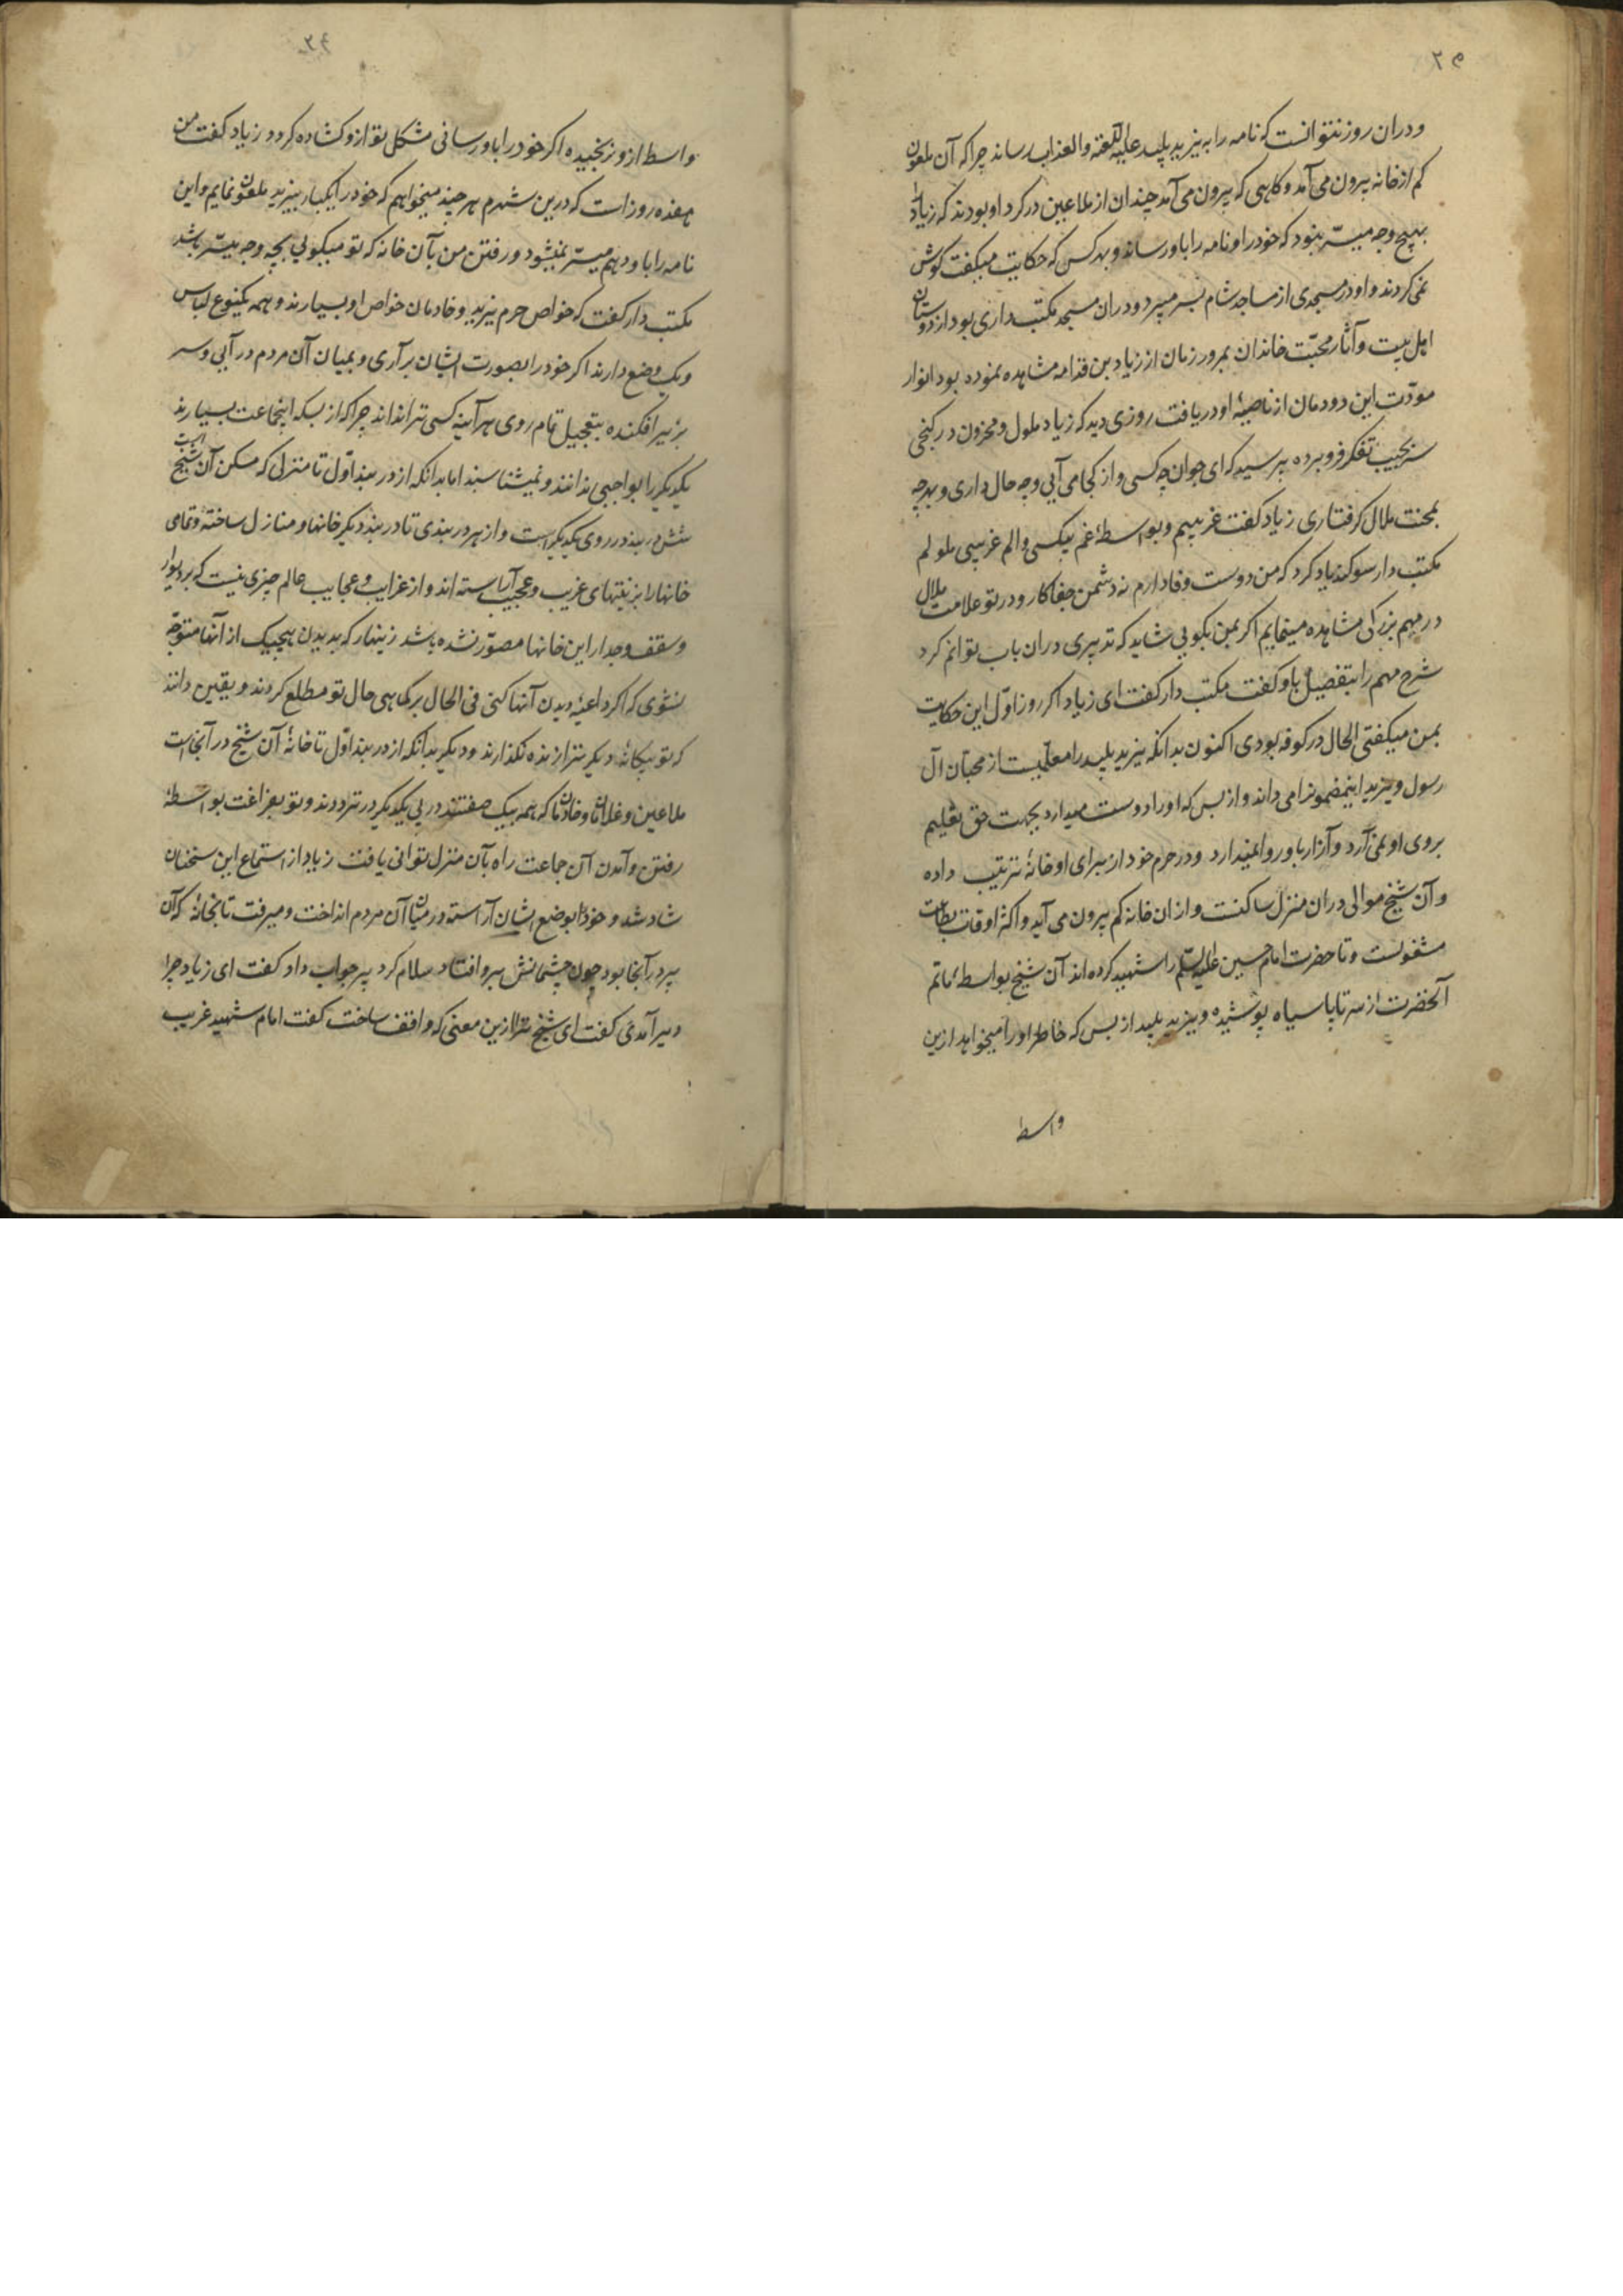 ودران روز نتوانست که نامه را به یزید پلید علیه اللعنة والعذاب رساند چرا که آن ملعون
کم از خانه بیرون می آمد و کاهی که بیرون می آمد چندان از ملاعین در کرد او بودند که زیاد را
بهیچ وجه میسّر نبود که خود را و نامه را باو رساند و بهر کس که حکایت میکفت کوش
نمی کردند و او در مسجدی از مساجد شام بسر میبرد و دران مسجد مکتب داری بود از دوستان
اهل بیت و آثار محبّت خاندان بمرور زمان از زیاد بن قدامه مشاهده نموده بود انوار
مودّت این دودمان از ناصیهٔ او دریافت روزی دید که زیاد ملول و محزون در کنجی
سر بجیب تفکر فرو برده پرسید که ای جوان چه کسی و از کجا می آیی و چه حال داری و بهرچه
بمحنت ملال کرفتاری زیاد کفت غریبیم و بواسطهٔ غم بیکسی و الم غریبی ملولم
مکتب دار سوکند یاد کرد که من دوست وفادارم نه دشمن جفاکار و در تو علامت ملال
در مهم بزرکی مشاهده مینمایم اکر بمن بکویی شاید که تدبیری دران باب توانم کرد
شرح مهم را بتفصیل باو کفت مکتب دار کفت ای زیاد اکر روز اوّل این حکایت
بمن میکفتی الحال در کوفه بودی اکنون بدانکه یزید پلید را معلّمیست از محبّان آل
رسول و یزید اینمضمونرا می داند و از بس که او را دوست میدارد بجهت حق تعلیم
بروی او نمی آرد و آزار باو روا نمیدارد و در حرم خود از برای او خانهٔ ترتیب داده
و آن شیخ موالی دران منزل ساکنست و از ان خانه کم بیرون می آید و اکثر اوقات بطاعت
مشغولست و تا حضرت امام حسین علیه السّلم را شهید کرده اند آن شیخ بواسطهٔ ماتم
آنحضرت از سر تا پا سیاه پوشیده و یزید پلید از بس که خاطر او را میخواهد ازین
واسط
۲۴
واسط ازو نرنجیده اکر خود را باو رسانی مشکل تو ازو کشاده کردد زیاد کفت من
هفده روز است که درین شهرم هر چند میخواهم که خود را یکبار بیزید ملعون نمایم و این
نامه را باو دهم میسّر نمیشود و رفتن من بآن خانه که تو میکویی بچه وجه میسّر باشد
مکتب دار کفت که خواص حرم یزید و خادمان خواص او بسیارند و همه یکنوع لباس
و یک وضع دارند اکر خود را بصورت ایشان برآری و بمیان آن مردم در آیی و سر
بزیر افکنده بتعجیل تمام روی هر آینه کسی ترا نداند چرا که از بسکه اینجماعت بسیارند
یکدیکر را بواجبی ندانند و نمیشناسند اما بدانکه از دربند اوّل تا منزلی که مسکن آن شیخ است
شش دربند در روی یکدیکر است و از هر دربندی تا دربند دیکر خانها و منازل ساخته و تمامی
خانها را بزینتهای غریب و عجیب آراسته اند و از غرایب و عجایب عالم چیزی نیست که بر دیوار
و سقف و جدار این خانها مصوّر نشده باشد زینهار که بدیدن هیچیک از آنها متوجّه
نشوی که اکر داعیهٔ دیدن آنها کنی فی الحال بر کماهی حال تو مطلع کردند و یقین دانند
که تو بیکانهٔ دیکر ترا زنده نکذارند و دیکر بدانکه از دربند اوّل تا خانهٔ آن شیخ در آنجاست
ملاعین و غلامان و خادمان که همه بیک صفتند در پی یکدیکر در ترددند و تو بفراغت بواسطهٔ
رفتن و آمدن آن جماعت راه بآن منزل توانی یافت زیاد از استماع این سخنان
شاد شد و خود را بوضع ایشان آراسته در میان آن مردم انداخت و میرفت تا بخانهٔ که آن
پیر در آنجا بود چون چشمانش برو افتاد سلام کرد پیر جواب داد کفت ای زیاد چرا
دیر آمدی کفت ای شیخ ترا ازین معنی که واقف ساخت کفت امام شهید غریب